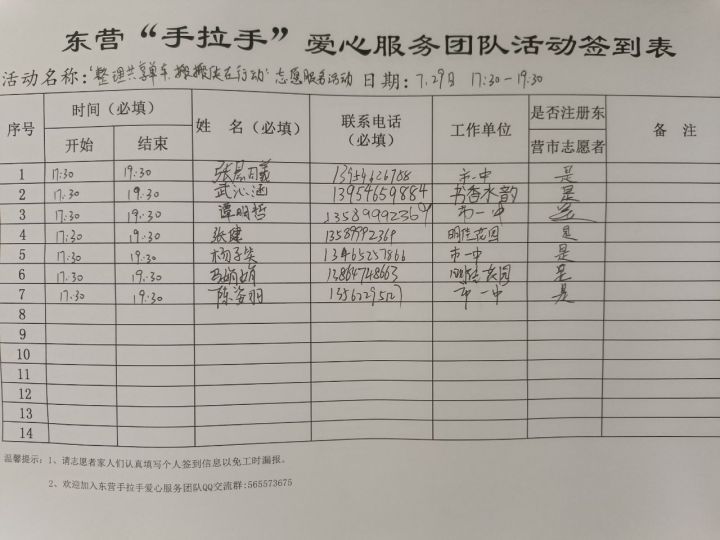 东营“手拉手”爱心服务团队活动签到表
活动名称:“整理共享单车,搬搬侠在行动”志愿服务活动 日期: 7.29日 17:30-19:30
序号 时间(必填) 姓 名(必填) 联系电话(必填) 工作单位 是否注册东营市志愿者 备 注
开始 结束
1 17:30 19.30 张晨曦 市一中 是
2 17.30 19.30 武沁涵 13954659884 书香水韵 是
3 17:30 19:30 谭明哲 13589992369 市一中 是
4 17:30 19:30 张健 13589992369 明佳花园 是
5 17.30 19.30 杨子荣 13465257866 市一中 是
6 17.30 19.30 马娟娟 13864748663 明佳花园 是
7 17.30 19.30 陈姿羽 市一中 是
8
9
10
11
12
13
14
温馨提示:1、请志愿者家人们认真填写个人签到信息以免工时漏报。
2、欢迎加入东营手拉手爱心服务团队QQ交流群:565573675